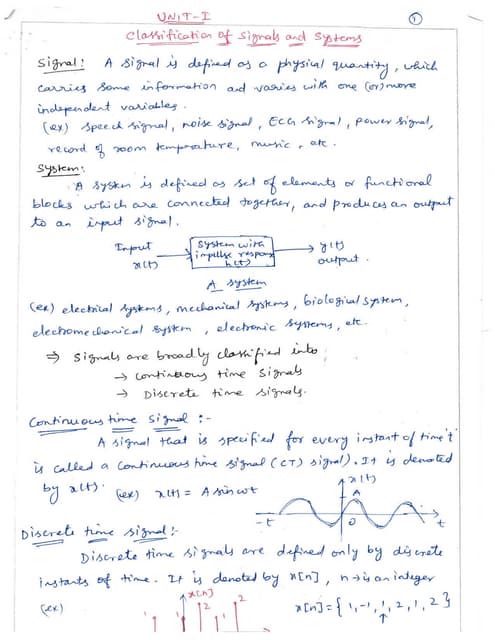 UNIT-I
1
Classification of Signals and Systems
Signal: A signal is defined as a physical quantity, which
carries some information ad varies with one (or) more
independent variables.
(ex) Speech signal, noise signal, ECG signal, power signal,
record of room temperature, music, etc.
System:
A system is defined as set of elements or functional
blocks which are connected together, and produces an output
to an input signal.
Input
x(t)
System with
impulse respons
h(t)
y(t)
output.
A system
(ex) electrical systems, mechanical systems, biological system,
electromechanical system, electronic systems, etc.
⇒ Signals are broadly classified into
→ continuous time signals
→ Discrete time signals.
Continuous time signal :-
A signal that is specified for every instant of time 't'
is called a continuous time signal (CT) signal). It is denoted
by x(t).
(ex) x(t) = A sin ωt
x(t)
A
-t
0
t
Discrete time signal:-
Discrete time signals are defined only by discrete
instants of time. It is denoted by x[n], n → is an integer
(ex)
x[n]
2
2
1
1
1
x[n] = { 1, -1, 1, 2, 1, 2 }
↑